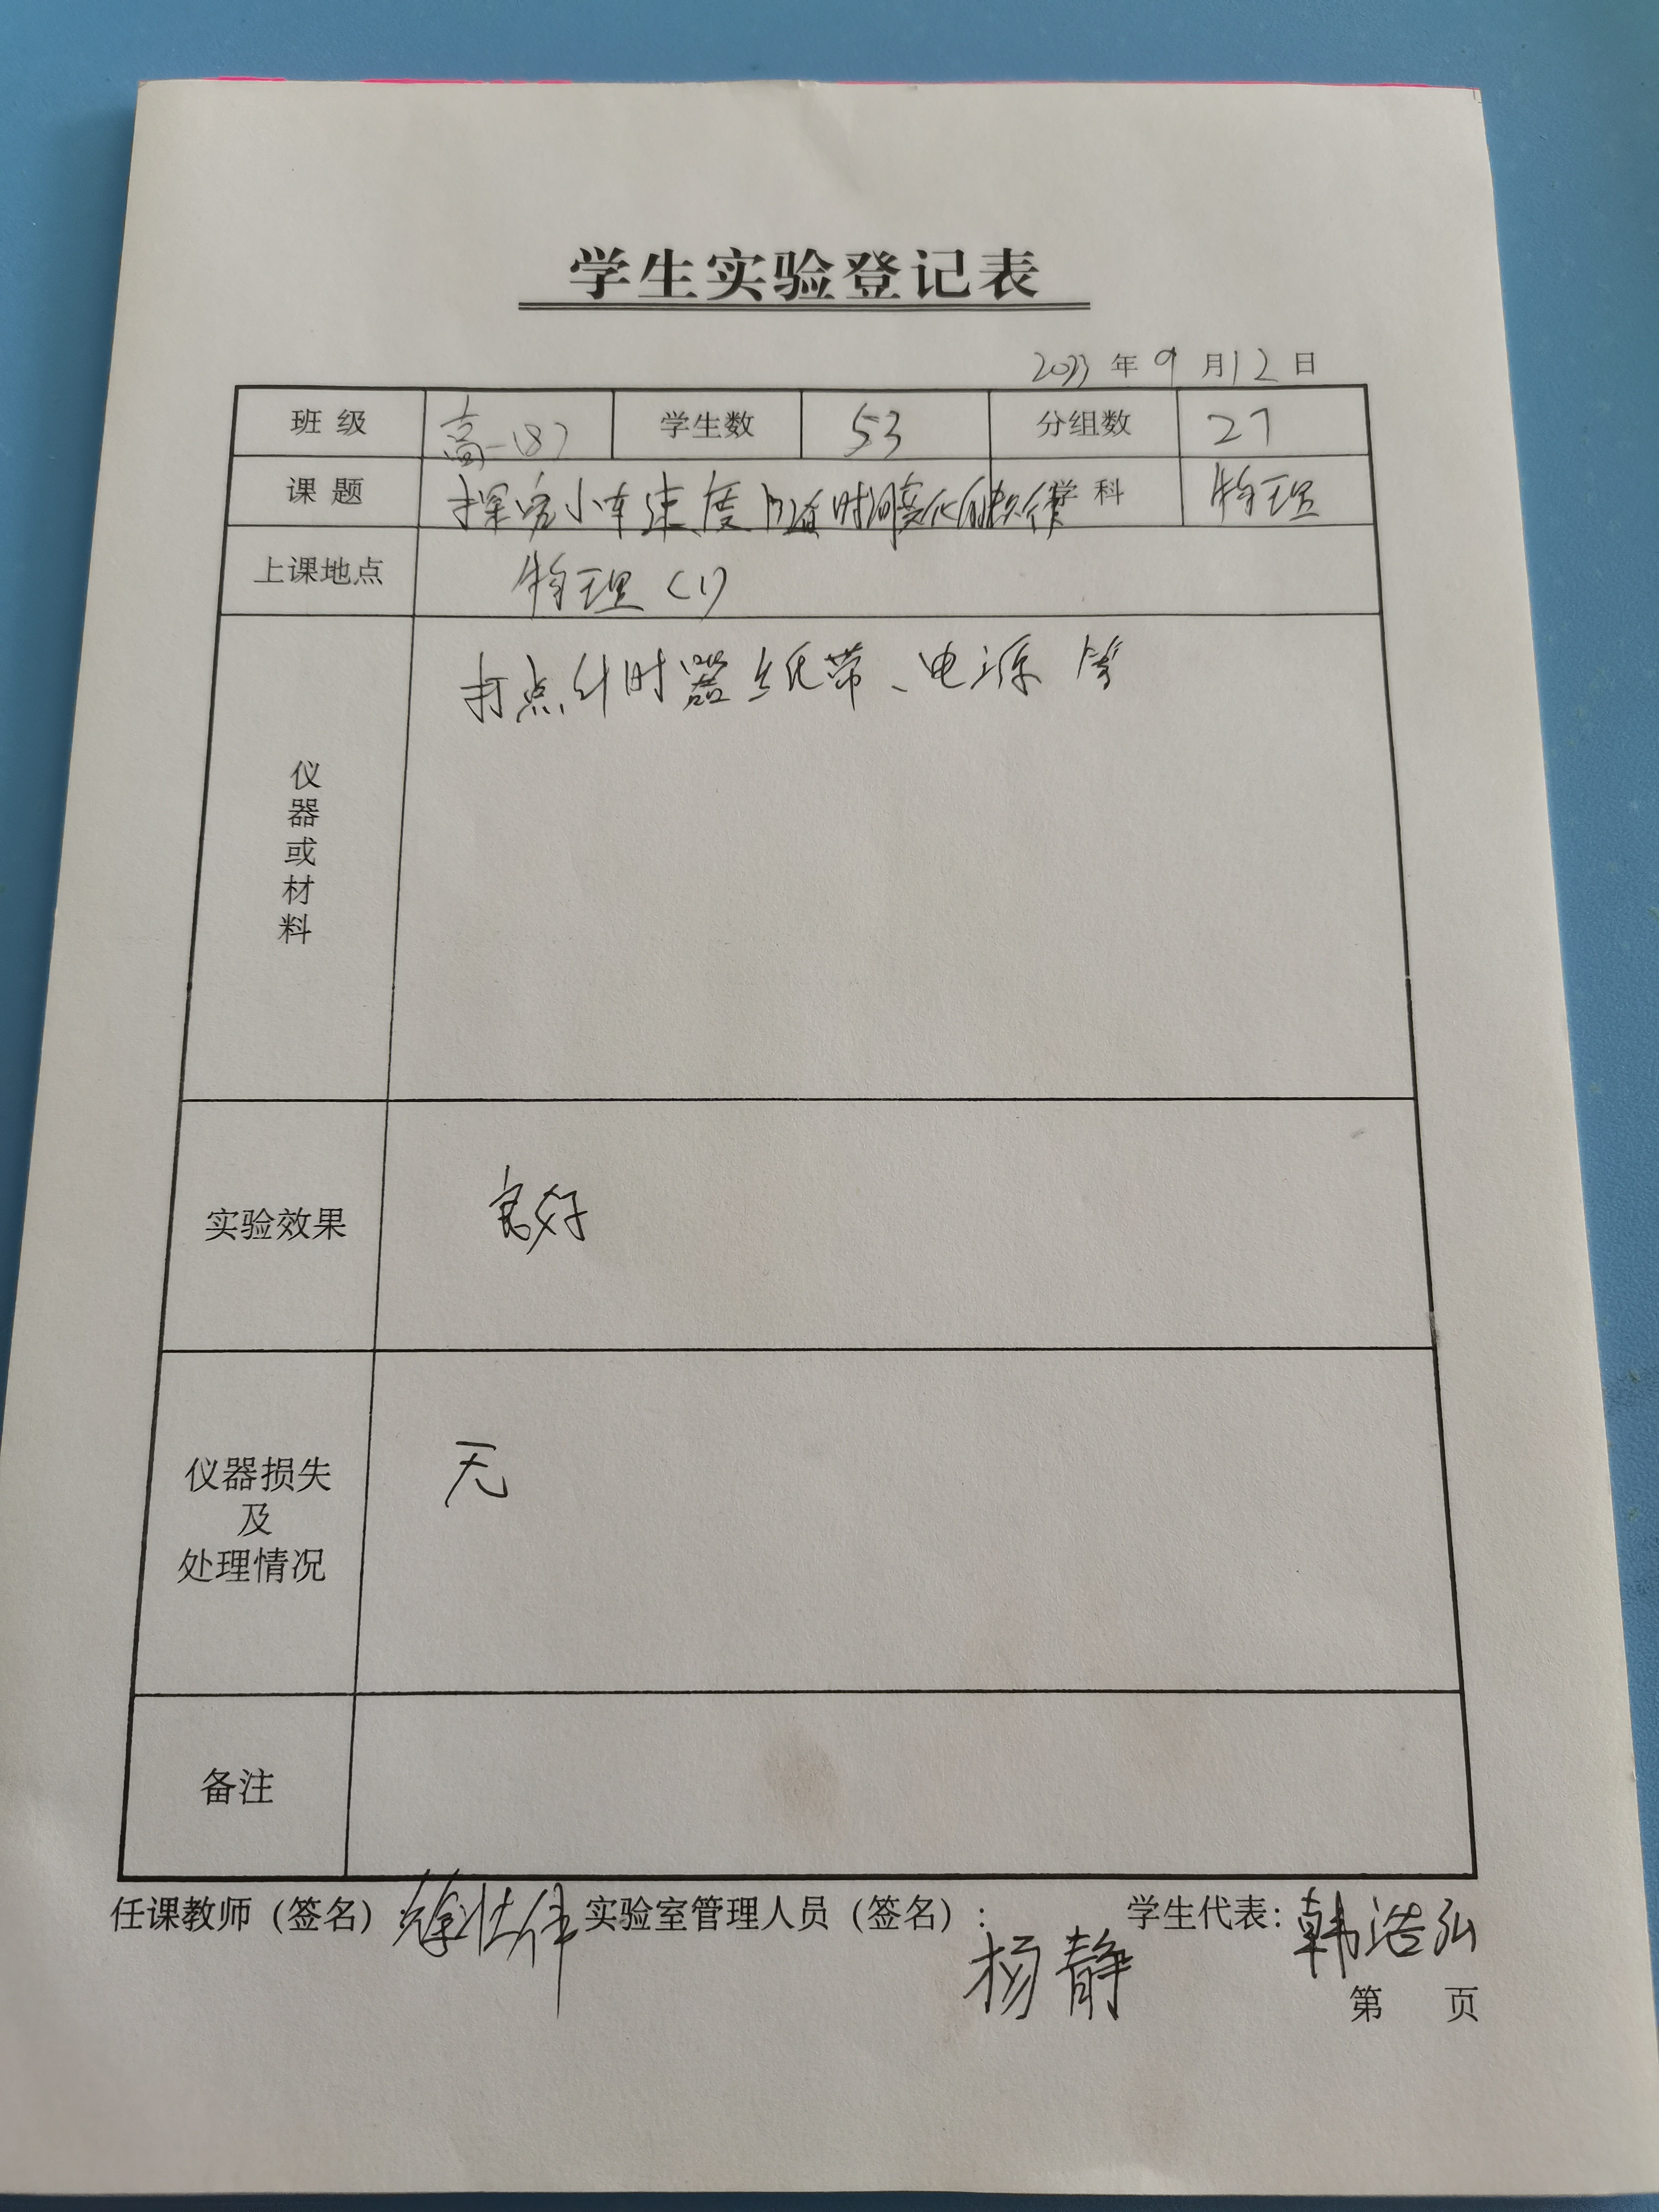 学生实验登记表
2023 年 9 月 12 日
班级 高一(8) 学生数 53 分组数 27
课题 探究小车速度随时间变化的规律 学科 物理
上课地点 物理(1)
仪器或材料 打点计时器 纸带、电源 等
实验效果 良好
仪器损失
及
处理情况 无
备注
任课教师(签名) 实验室管理人员(签名): 杨静 学生代表: 韩浩弘
第 页